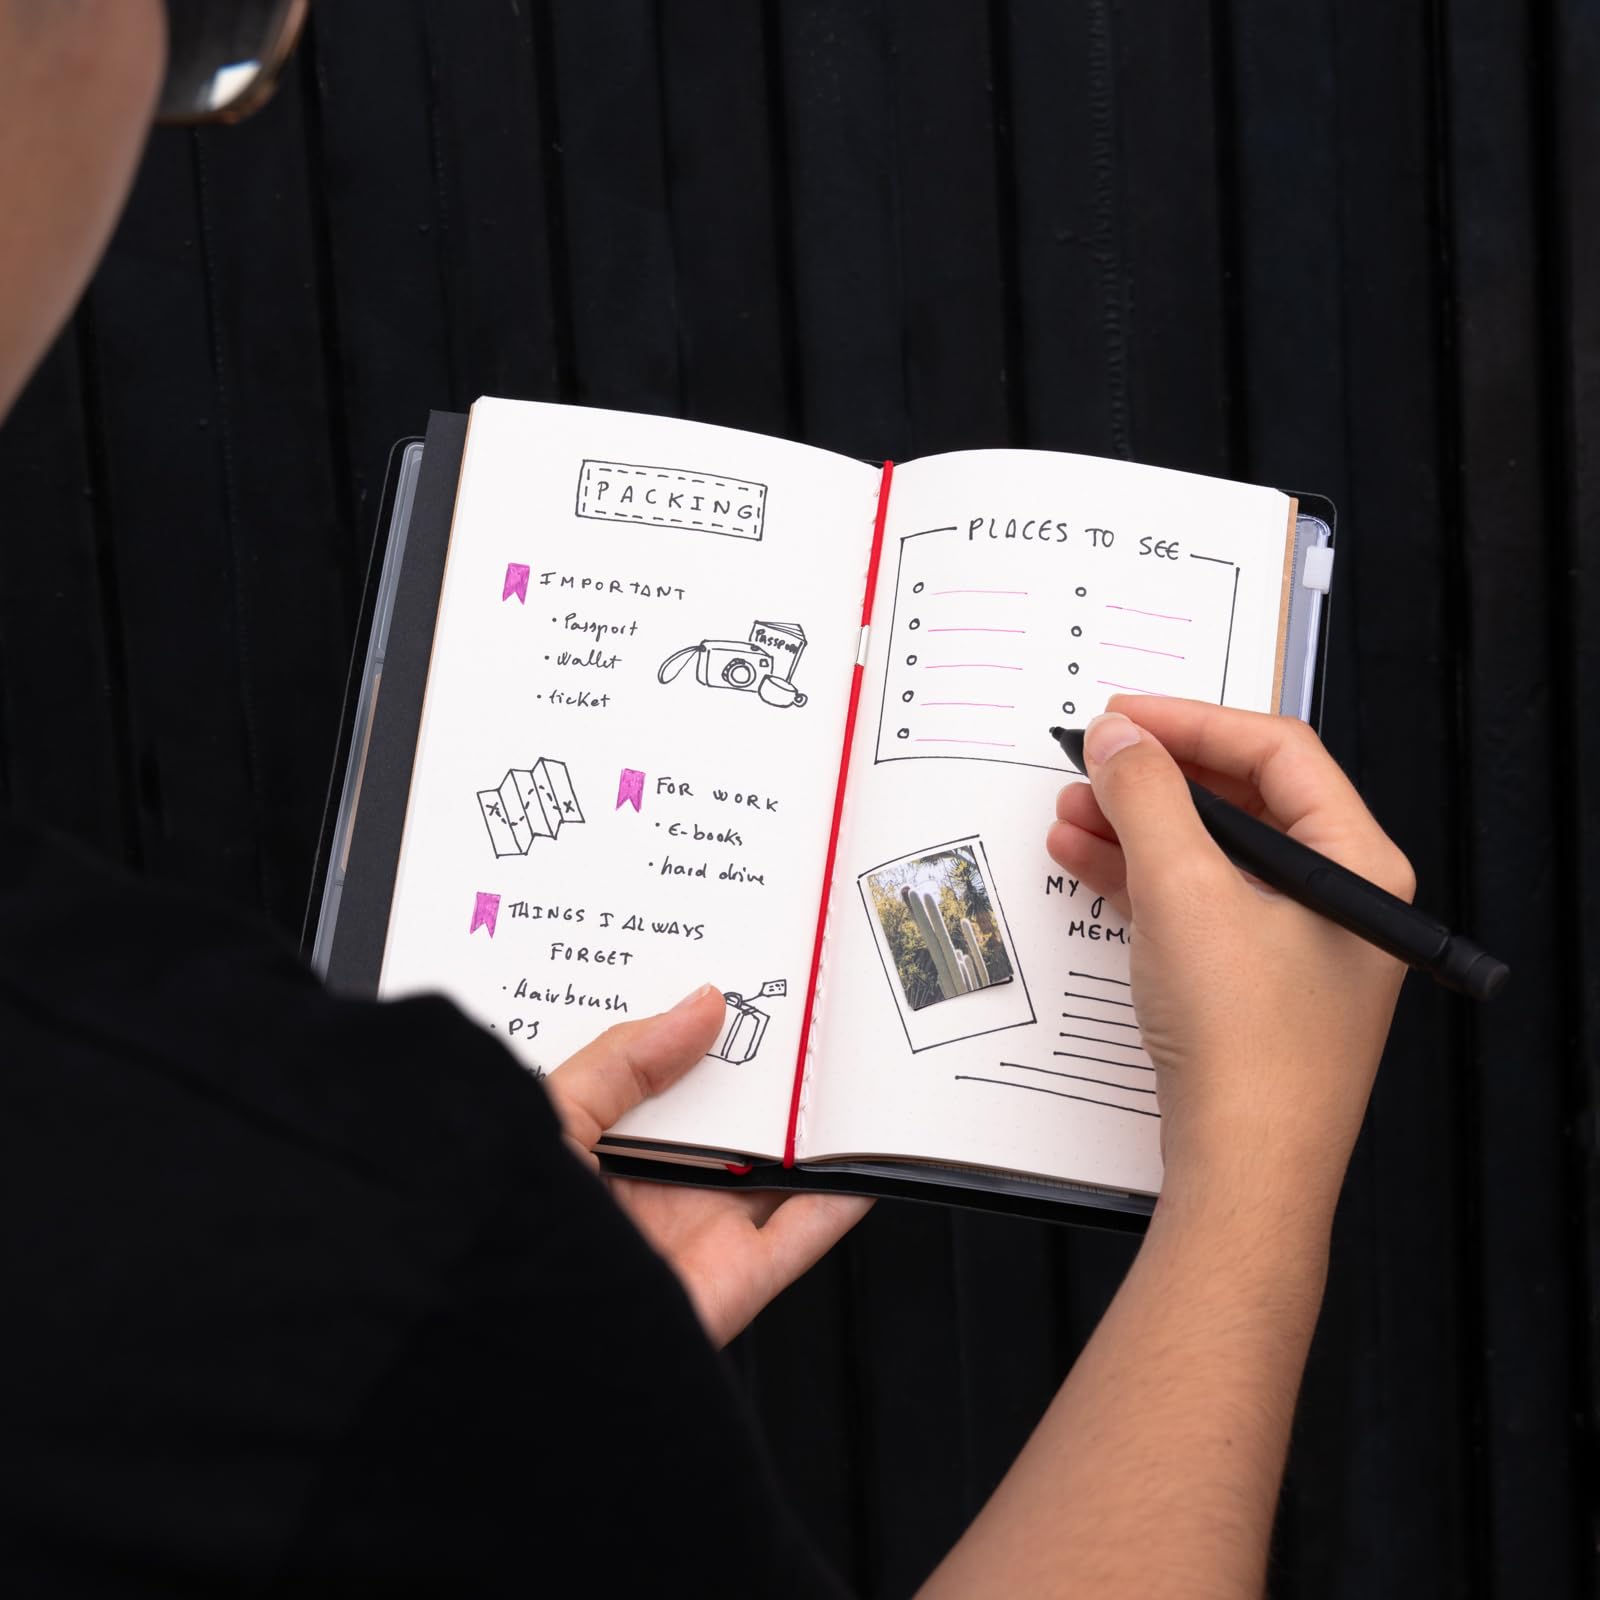 PACKING
IMPORTANT
• Passport
• Wallet
• ticket
Passport
FOR WORK
• E-books
• hard drive
THINGS I ALWAYS
FORGET
• Hairbrush
• PJ
PLACES TO SEE
MY